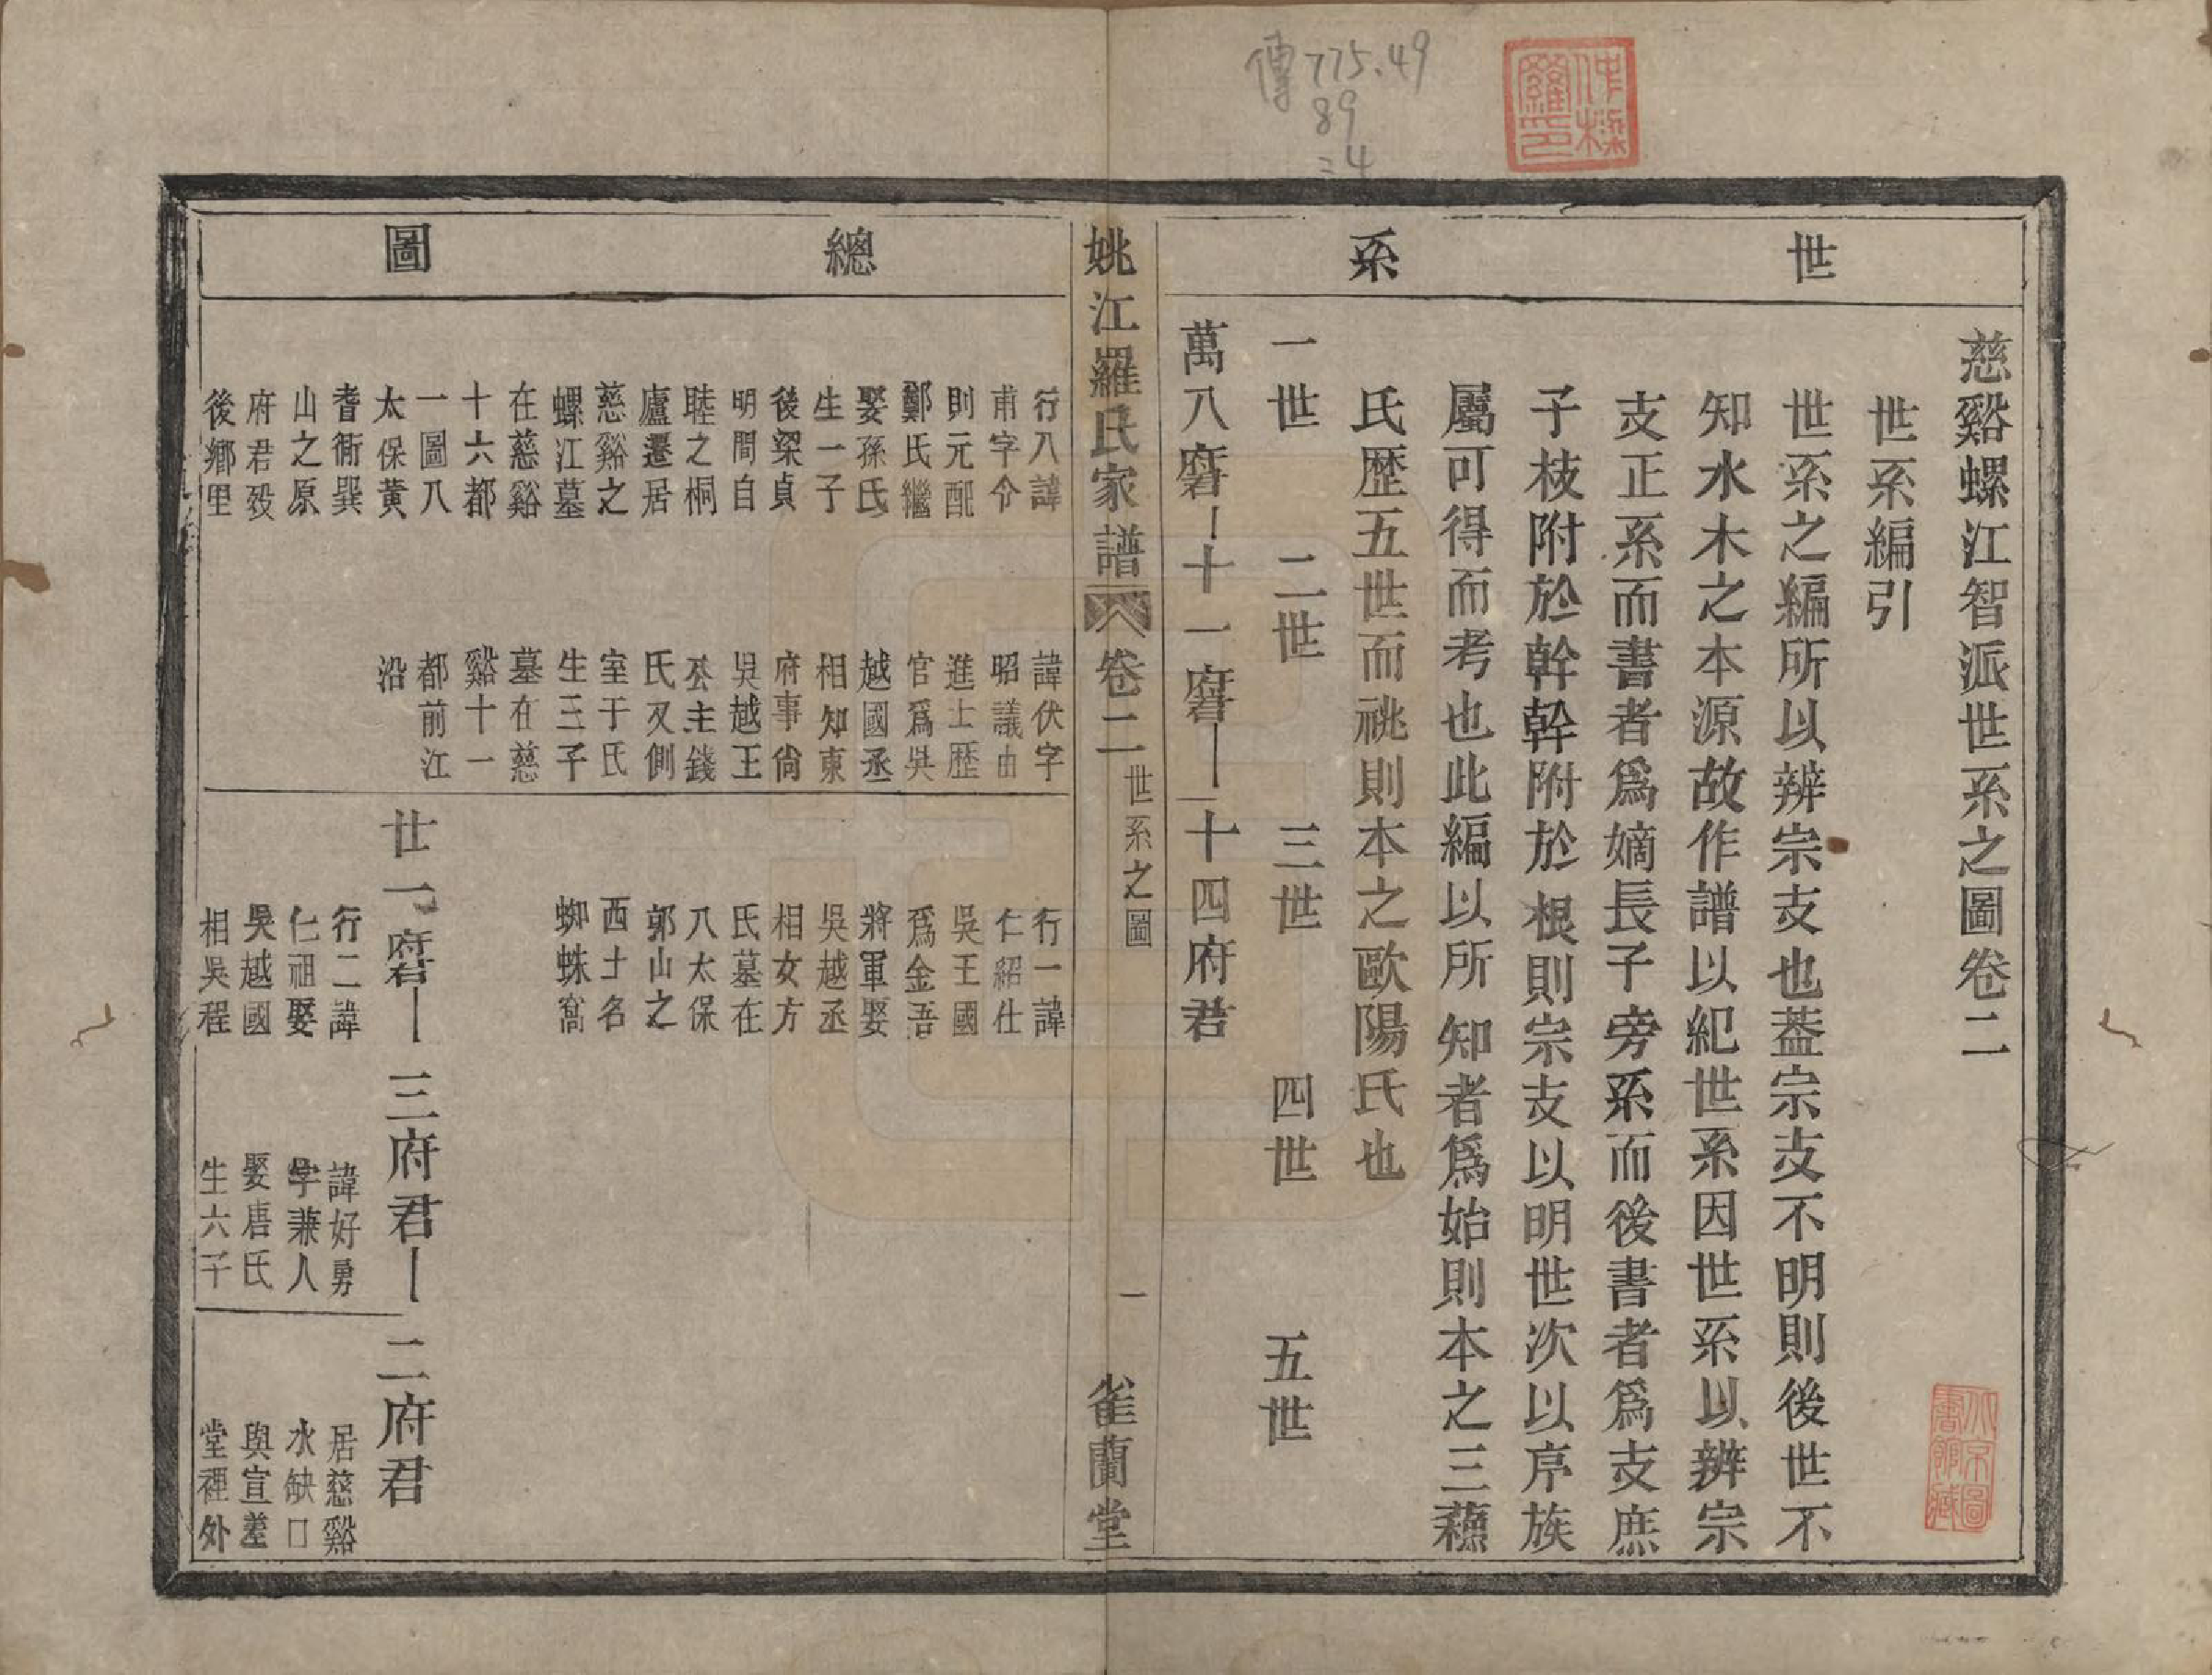 傳775.49
89
:4
仲樑
羅印
世系
慈谿螺江智派世系之圖卷二
世系編引
世系之編所以辨宗支也葢宗支不明則後世不
知水木之本源故作譜以紀世系因世系以辨宗
支正系而書者爲嫡長子旁系而後書者爲支庶
子枝附於幹幹附於根則宗支以明世次以序族
屬可得而考也此編以所知者爲始則本之三蘓
氏歴五世而祧則本之歐陽氏也
一世 二世 三世 四世 五世
萬八府君 十一府君 二十四府君
姚江羅氏家譜 卷二 世系之圖 一 雀蘭堂
總圖
行八諱
甫字令
則元配
鄭氏繼
娶孫氏
生一子
後梁貞
明間自
睦之桐
廬遷居
慈谿之
螺江墓
在慈谿
十六都
一圖八
太保黄
耆衕巽
山之原
府君歿
後鄉里
諱伏字
昭議由
進士歴
官爲吳
越國丞
相知東
府事尙
吳越王
公主錢
氏又側
室于氏
生三子
墓在慈
谿十一
都前江
沿
行一諱
仁紹仕
吳王國
爲金吾
將軍娶
吳越丞
相女方
氏墓在
八太保
郭山之
西土名
蜘蛛窩
廿一府君 三府君 二府君
行二諱
仁祖娶
吳越國
相吳程
諱好勇
字兼人
娶唐氏
生六子
居慈谿
水缺口
與宣差
堂裡外